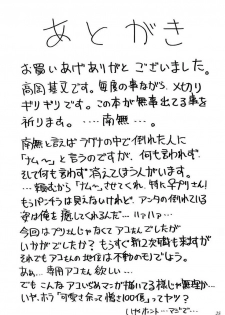 あとがき
お買いあげありがとございました。
高岡基文です。毎度の事ながら、〆切り
ギリギリです。この本が無事出てる事を
祈ります。‥‥南無‥。
南無と言えばラグナの中で倒れた人に
「ナム～」と言うのですが、何も言わず、
そして何も言わず消えてしまう人がいます。
‥‥頼むから「ナム～」させてくれ、特に♀プリさん!
もうパンチラは見えないけれど、アンタの倒れている
姿は俺を癒してくれるんだ…ハァハァ…
今回はプリさんじゃなくてアコさんでしたが
いかがでしたか? もうすぐ新2次職も来ますが
それでもアコさんの地位は不動のモノでしょう。
あぁ…専用アコさん欲しい…
でもこんなアコいぢめマンガ描いてる様じゃ無理か…
いや、ホラ「可愛さ余って描き100倍」ってヤツ?
いやホント…マジで…
25